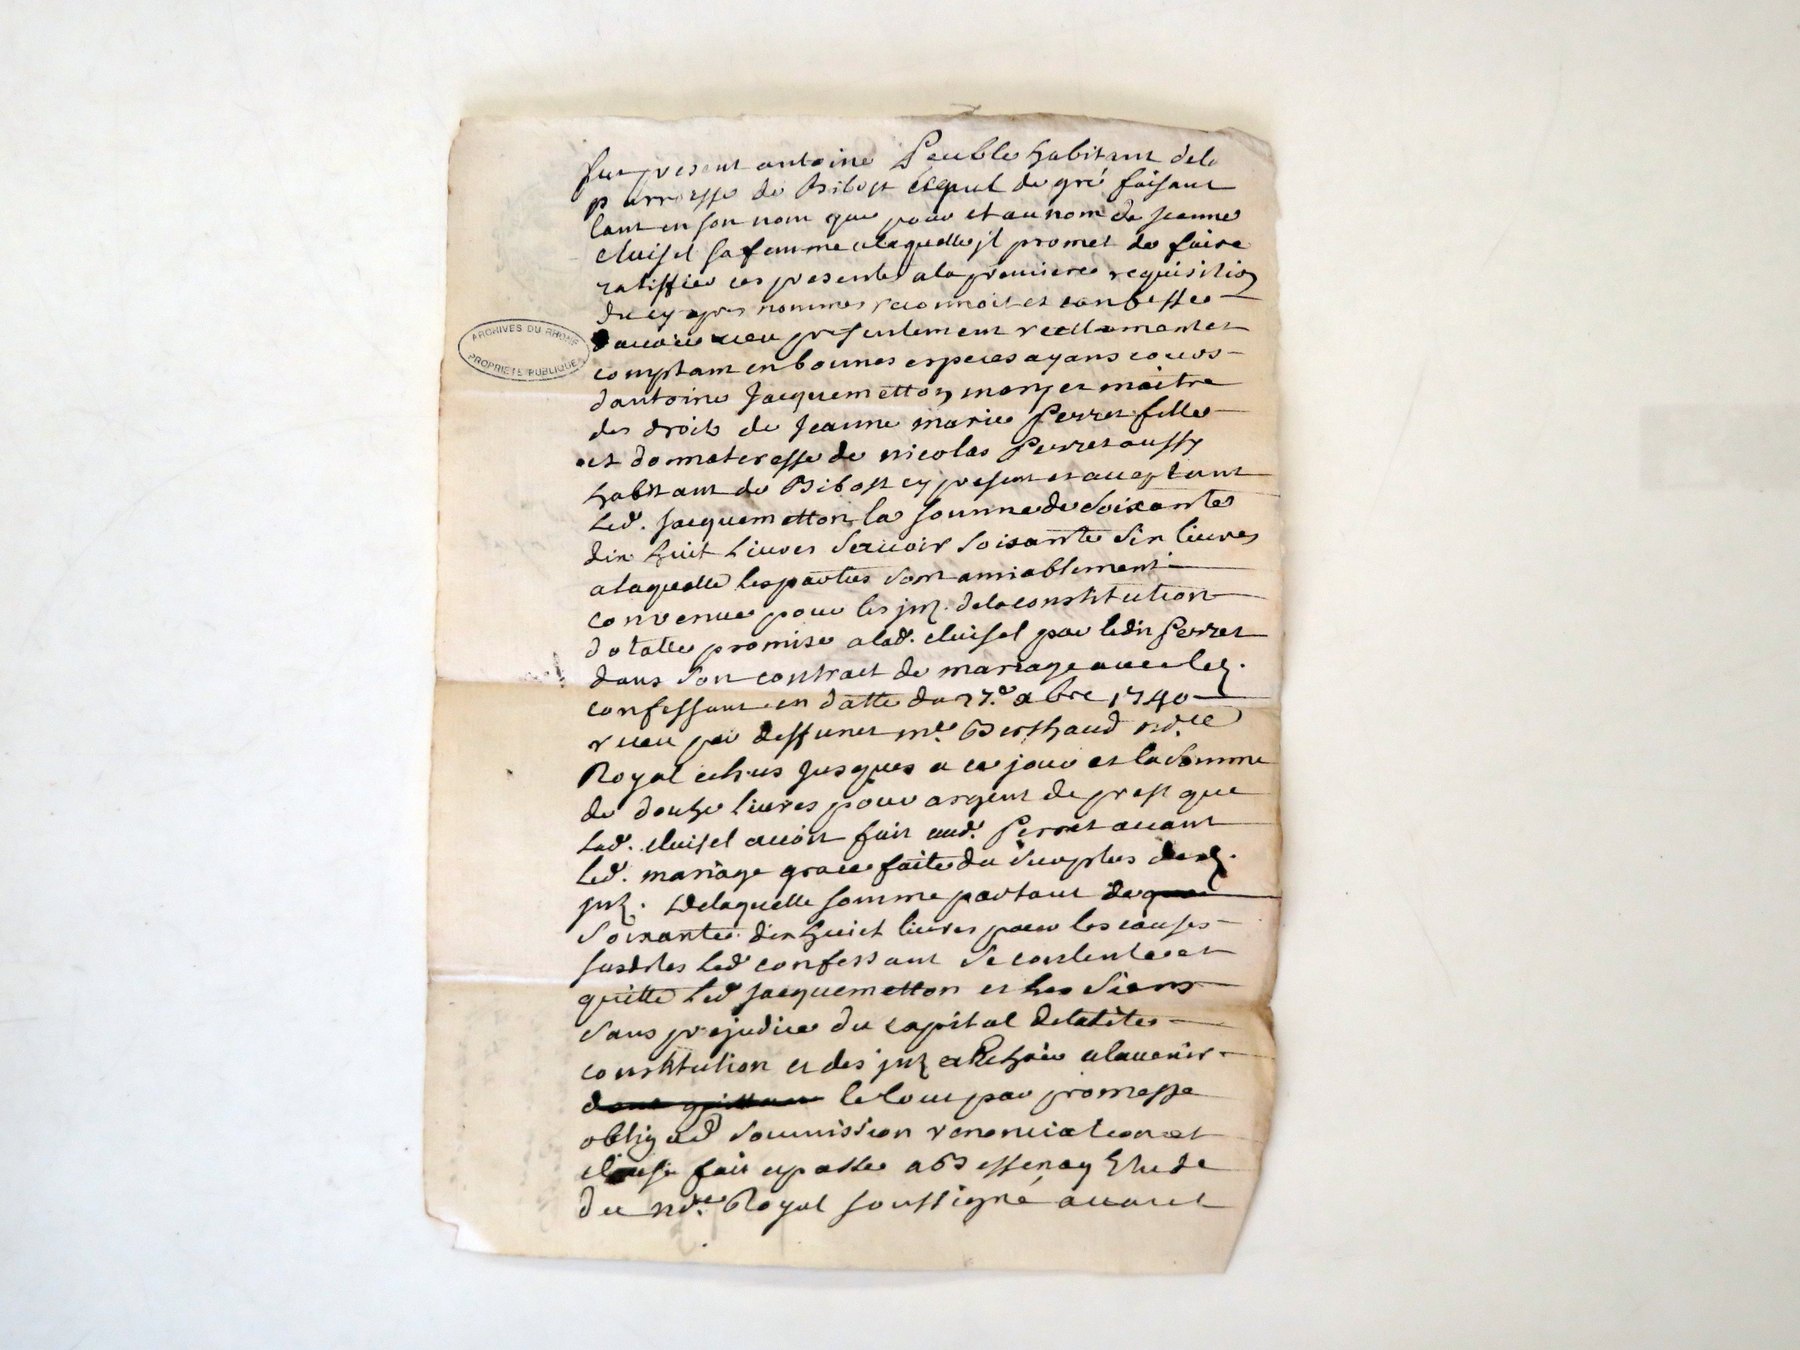 fut present antoine Peuble habitant dela
parroisse de Bibost lequel de gré faisant
tant en son nom que pour et au nom de jeanne
cluisel sa femme alaquelle jl promet de faire
ratiffier ces presentes ala premiere requisition
du cy apres nommes reconnoit et confesse
davoir reçu presentement reellement et
comptant en bonnes especes ayans cours
dantoine Jacquemetton mary et maitre
des droits de Jeanne marie Perret fille
et donnateresse de nicolas Perret aussy
habitant de Bibost cy present et acceptant
Led. Jacquemetton la somme de Soixante
dix huit Livres Scavoir Soixante Six livres
a laquelle les parties Sont amiablement
convenue pour les jnz. dela constitution
dotalle promise alad. cluisel par ledit Perret
dans Son contrait de mariage avec le
confessant en datte du 27.e 1740
receu par deffunct me. Berthaud
Royal echus Jusques a ce jour et la Somme
de douze livres pour argent de prest que
Lad. cluisel avoit fait aud. Perret avant
Led. mariage grace faite du Surplus desd.
jnz. Delaquelle somme partant de
Soixante dix huict livres pour les causes
susdites Led confessant Se contente et
quitte Led Jacquemetton et les Siens
Sans prejudice du capital deladite
constitution et des jnz a Echoir alavenir
le tout par promesse
obligaõ Soumission renonciation et
clause fait et passé a Bessenay Etude
du Royal soussigné avant
ARCHIVES DU RHONE
PROPRIETE PUBLIQUE